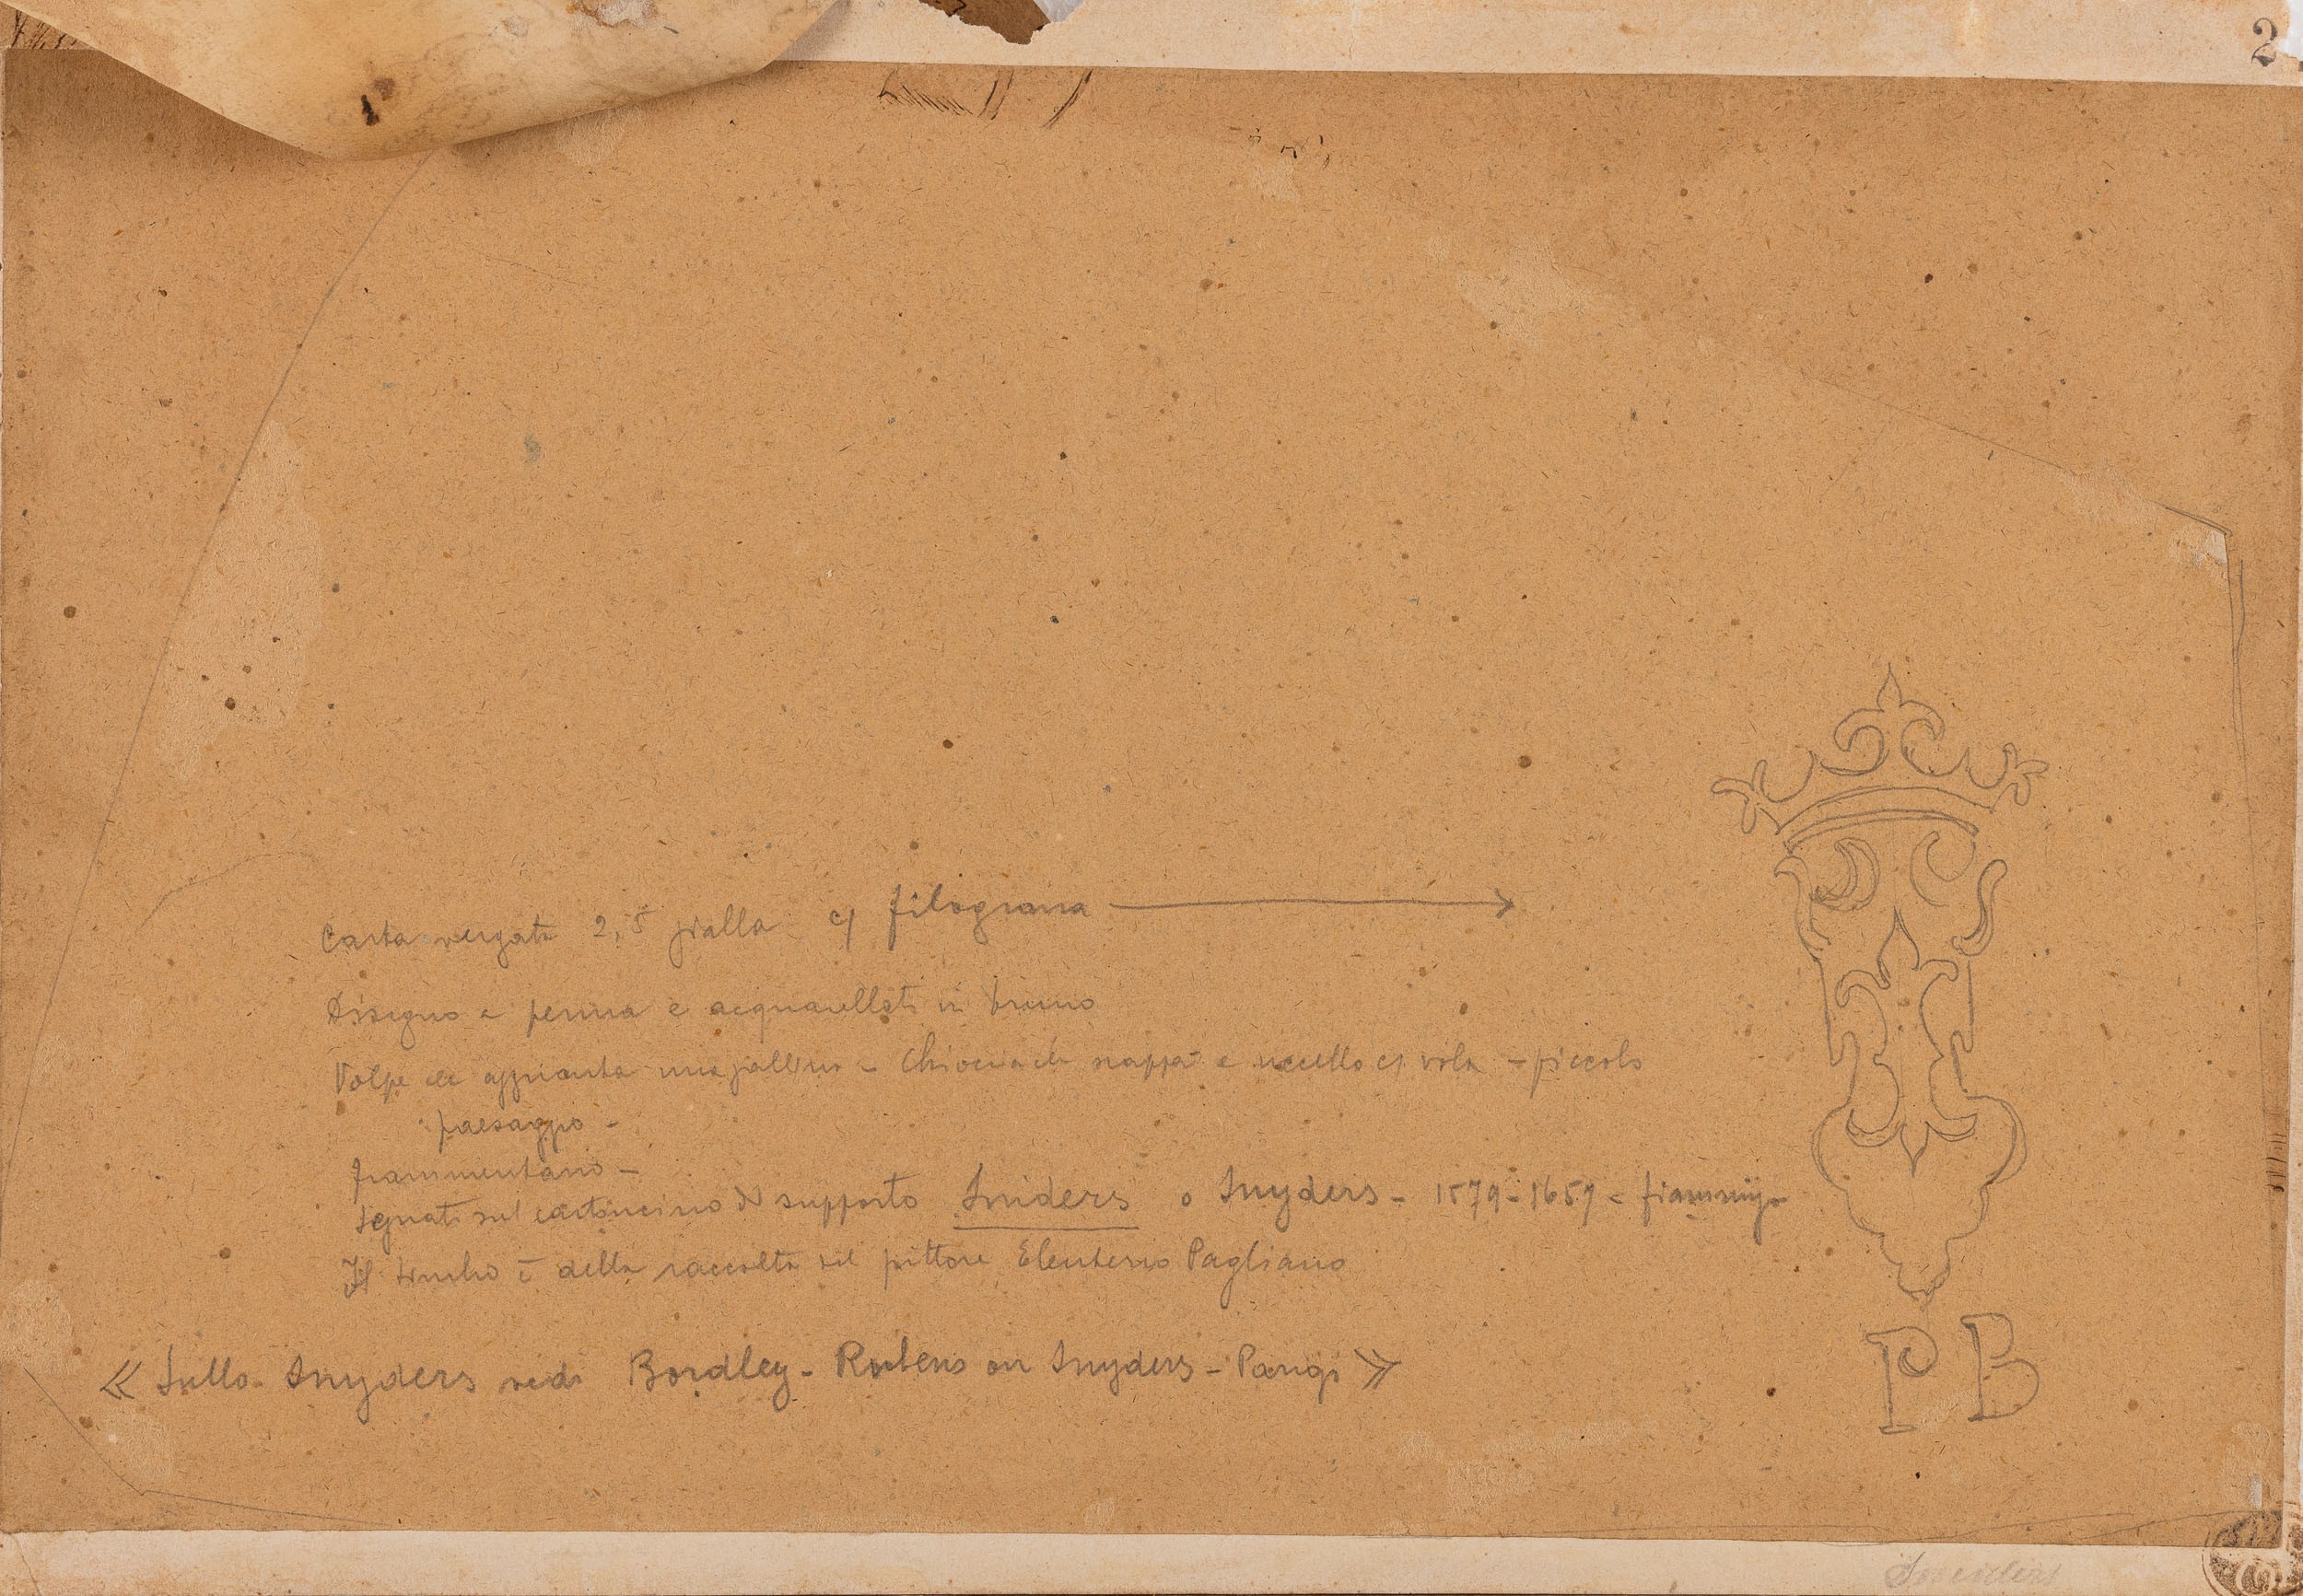 2
Carta vergata 2,5 gialla c/ filograna
Disegno a penna e acquarellato in bruno
Volpe che agguanta una gallina - Chioccia che scappa e uccello c/ vola - piccolo
paesaggio -
frammentario -
Segnato sul cartoncino di supporto Sniders o Snyders - 1579-1657 - fiammingo
Il timbro è della raccolta del pittore Eleuterio Pagliano
« Sullo Snyders vedi Bordley - Rubens ou Snyders - Parigi »
P B
Sneiders